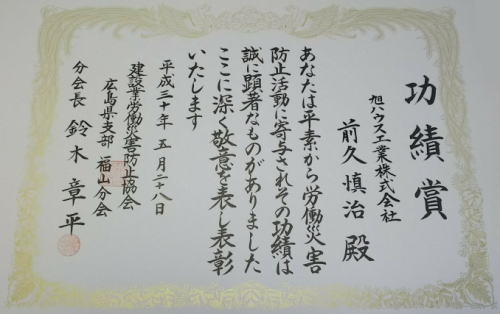 功績賞
旭ハウス工業株式会社
前久慎治殿
あなたは平素から労働災害
防止活動に寄与されその功績は
誠に顕著なものがありました
ここに深く敬意を表し表彰
いたします
平成三十年五月二十八日
建設業労働災害防止協会
広島県支部 福山分会
分会長 鈴木章平